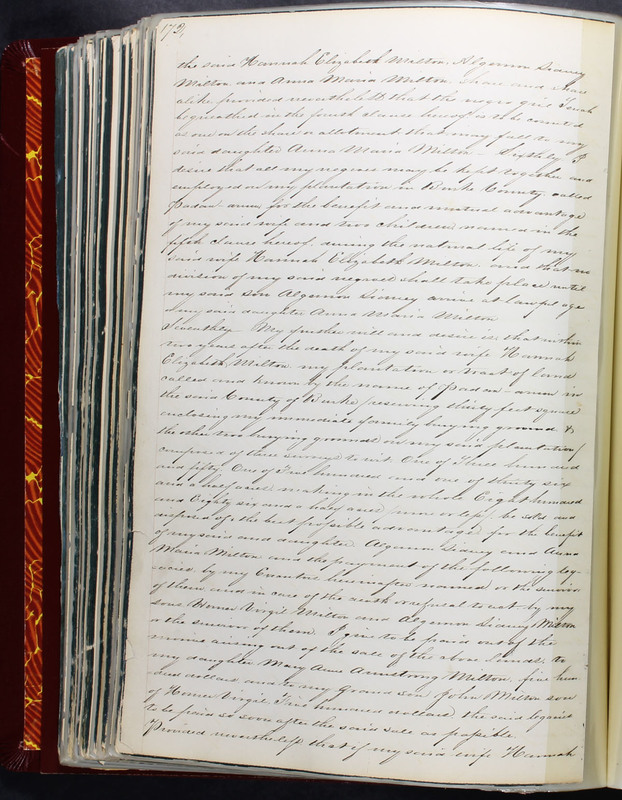 173,
the said Hannah Elizabeth Milton, Algernon Sidney
Milton and Anna Maria Milton, share and share
alike provided nevertheless that the negro girl Sarah
bequeathed in the fourth clause hereof is to be counted
as one in the share or allotment that may fall to my
said daughter Anna Maria Milton. Sixthly I
desire that all my negroes may be kept together and
employed on my plantation in Burke County called
for the benefit and mutual advantage
of my said wife and two children named in the
fifth clause hereof during the natural life of my
said wife Hannah Elizabeth Milton and that no
division of my said negroes shall take place until
my said son Algernon Sidney arrive at lawful age
my said daughter Anna Maria Milton
Seventhly My further will and desire is, that within
two years after the death of my said wife Hannah
Elizabeth Milton my plantation or tract of land
called and known by the name of in
the said County of Burke reserving thirty feet square
enclosing my immediate family burying ground &
the other two burying grounds on my said plantation
composed of three surveys to wit. One of Three hundred
and fifty One of Five hundred and one of thirty six
and a half acres making in the whole Eight hundred
and Eighty six and a half acres more or less, be sold and
disposed of to the best possible advantage for the benefit
of my said and daughter Algernon Sidney and Anna
Maria Milton and the payment of the following leg-
acies by my Executors hereinafter named or the survivor
of them and in case of the death or refusal to act by my
sons Homer Virgil Milton and Algernon Sidney Milton
or the survivor of them. I give to be paid out of the
monies arising out of the sale of the above lands, to
my daughter Mary Ann Armstrong Milton five hun-
dred dollars and to my Grand son John Milton son
of Homer Virgil Five hundred dollars the said legacies
to be paid so soon after the said sale as possible.
Provided nevertheless that if my said wife Hannah